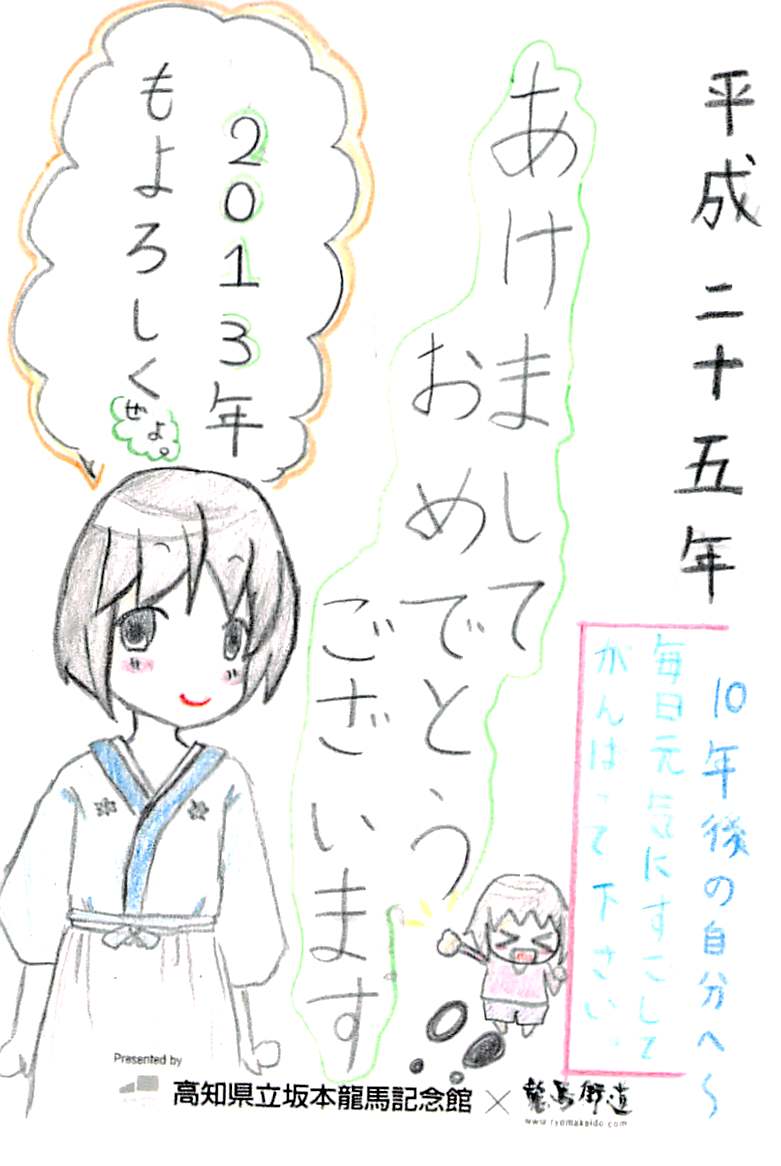 平成二十五年
10年後の自分へ〜
毎日元気にすごして
がんばって下さい。
あけまして
おめでとう
ございます
2013年
もよろしく
せよ。
Presented by
高知県立坂本龍馬記念館×龍馬街道
www.ryomakaido.com